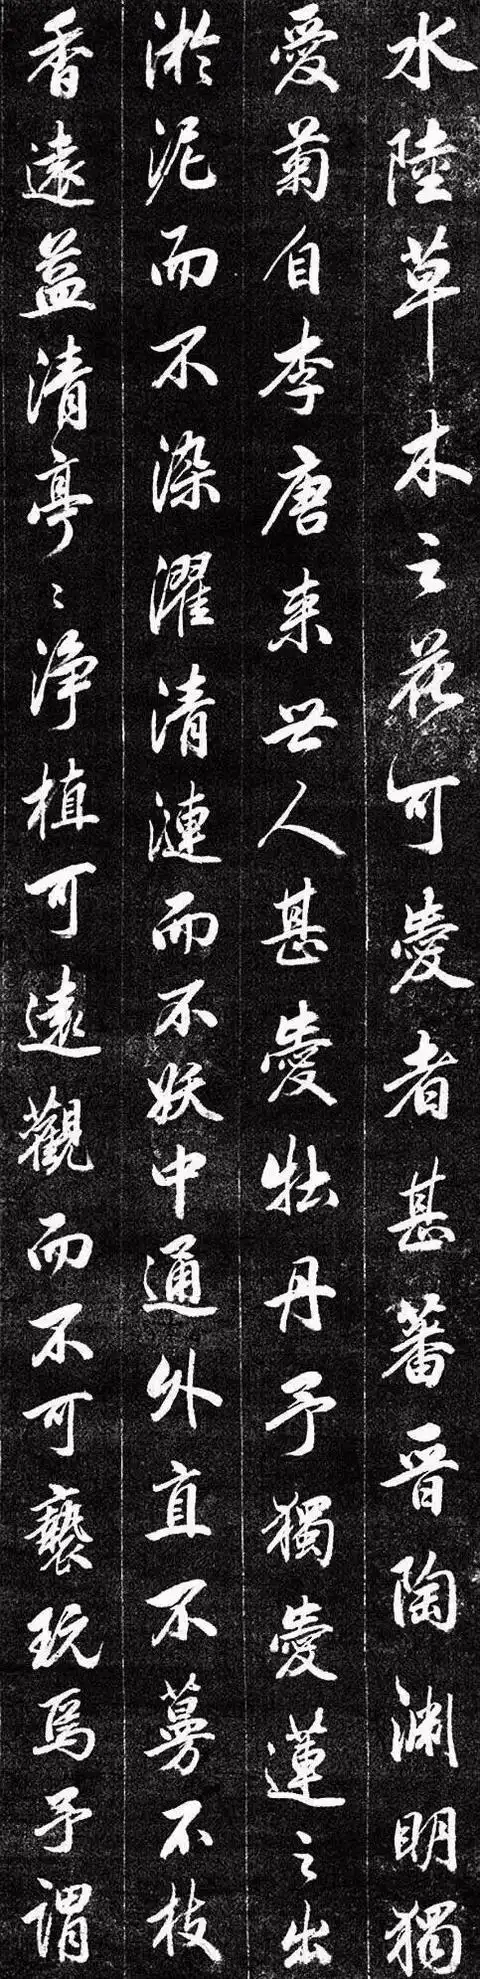 水陸草木之花可愛者甚蕃晉陶渊明獨
愛菊自李唐来世人甚愛牡丹予獨愛蓮之出
淤泥而不染濯清漣而不妖中通外直不蔓不枝
香遠益清亭〻浄植可遠觀而不可褻玩焉予謂